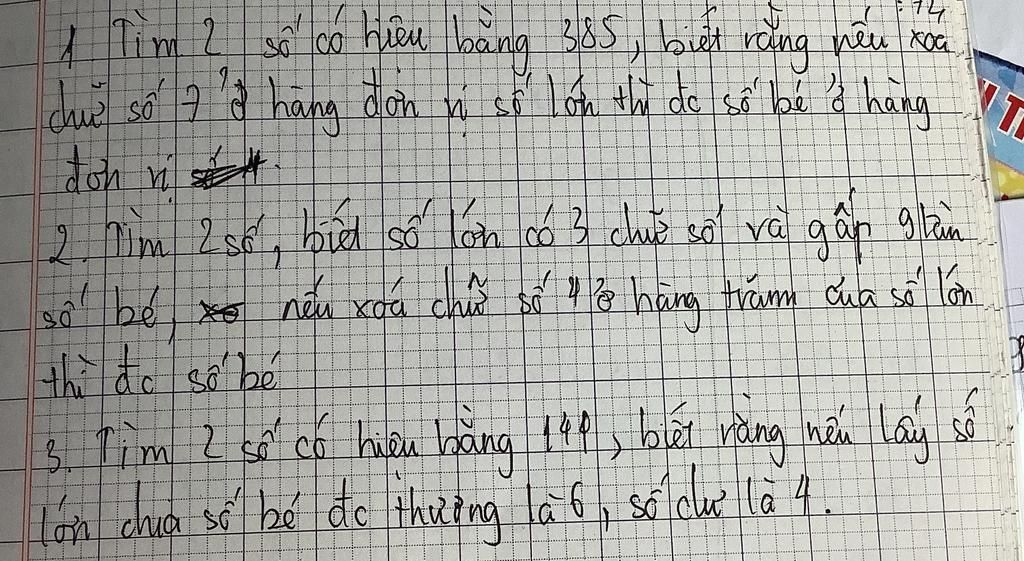 : 74
1 Tìm 2 số có hiệu bằng 385, biết rằng nếu xoá
chữ số 7 ở hàng đơn vị số lớn thì đc số bé ở hàng
đơn vị
2. Tìm 2 số, biết số lớn có 3 chữ số và gấp 9 lần
số bé, nếu xoá chữ số 4 ở hàng trăm của số lớn
thì đc số bé
3. Tìm 2 số có hiệu bằng 149, biết rằng nếu lấy số
lớn chia số bé đc thương là 6, số dư là 4.